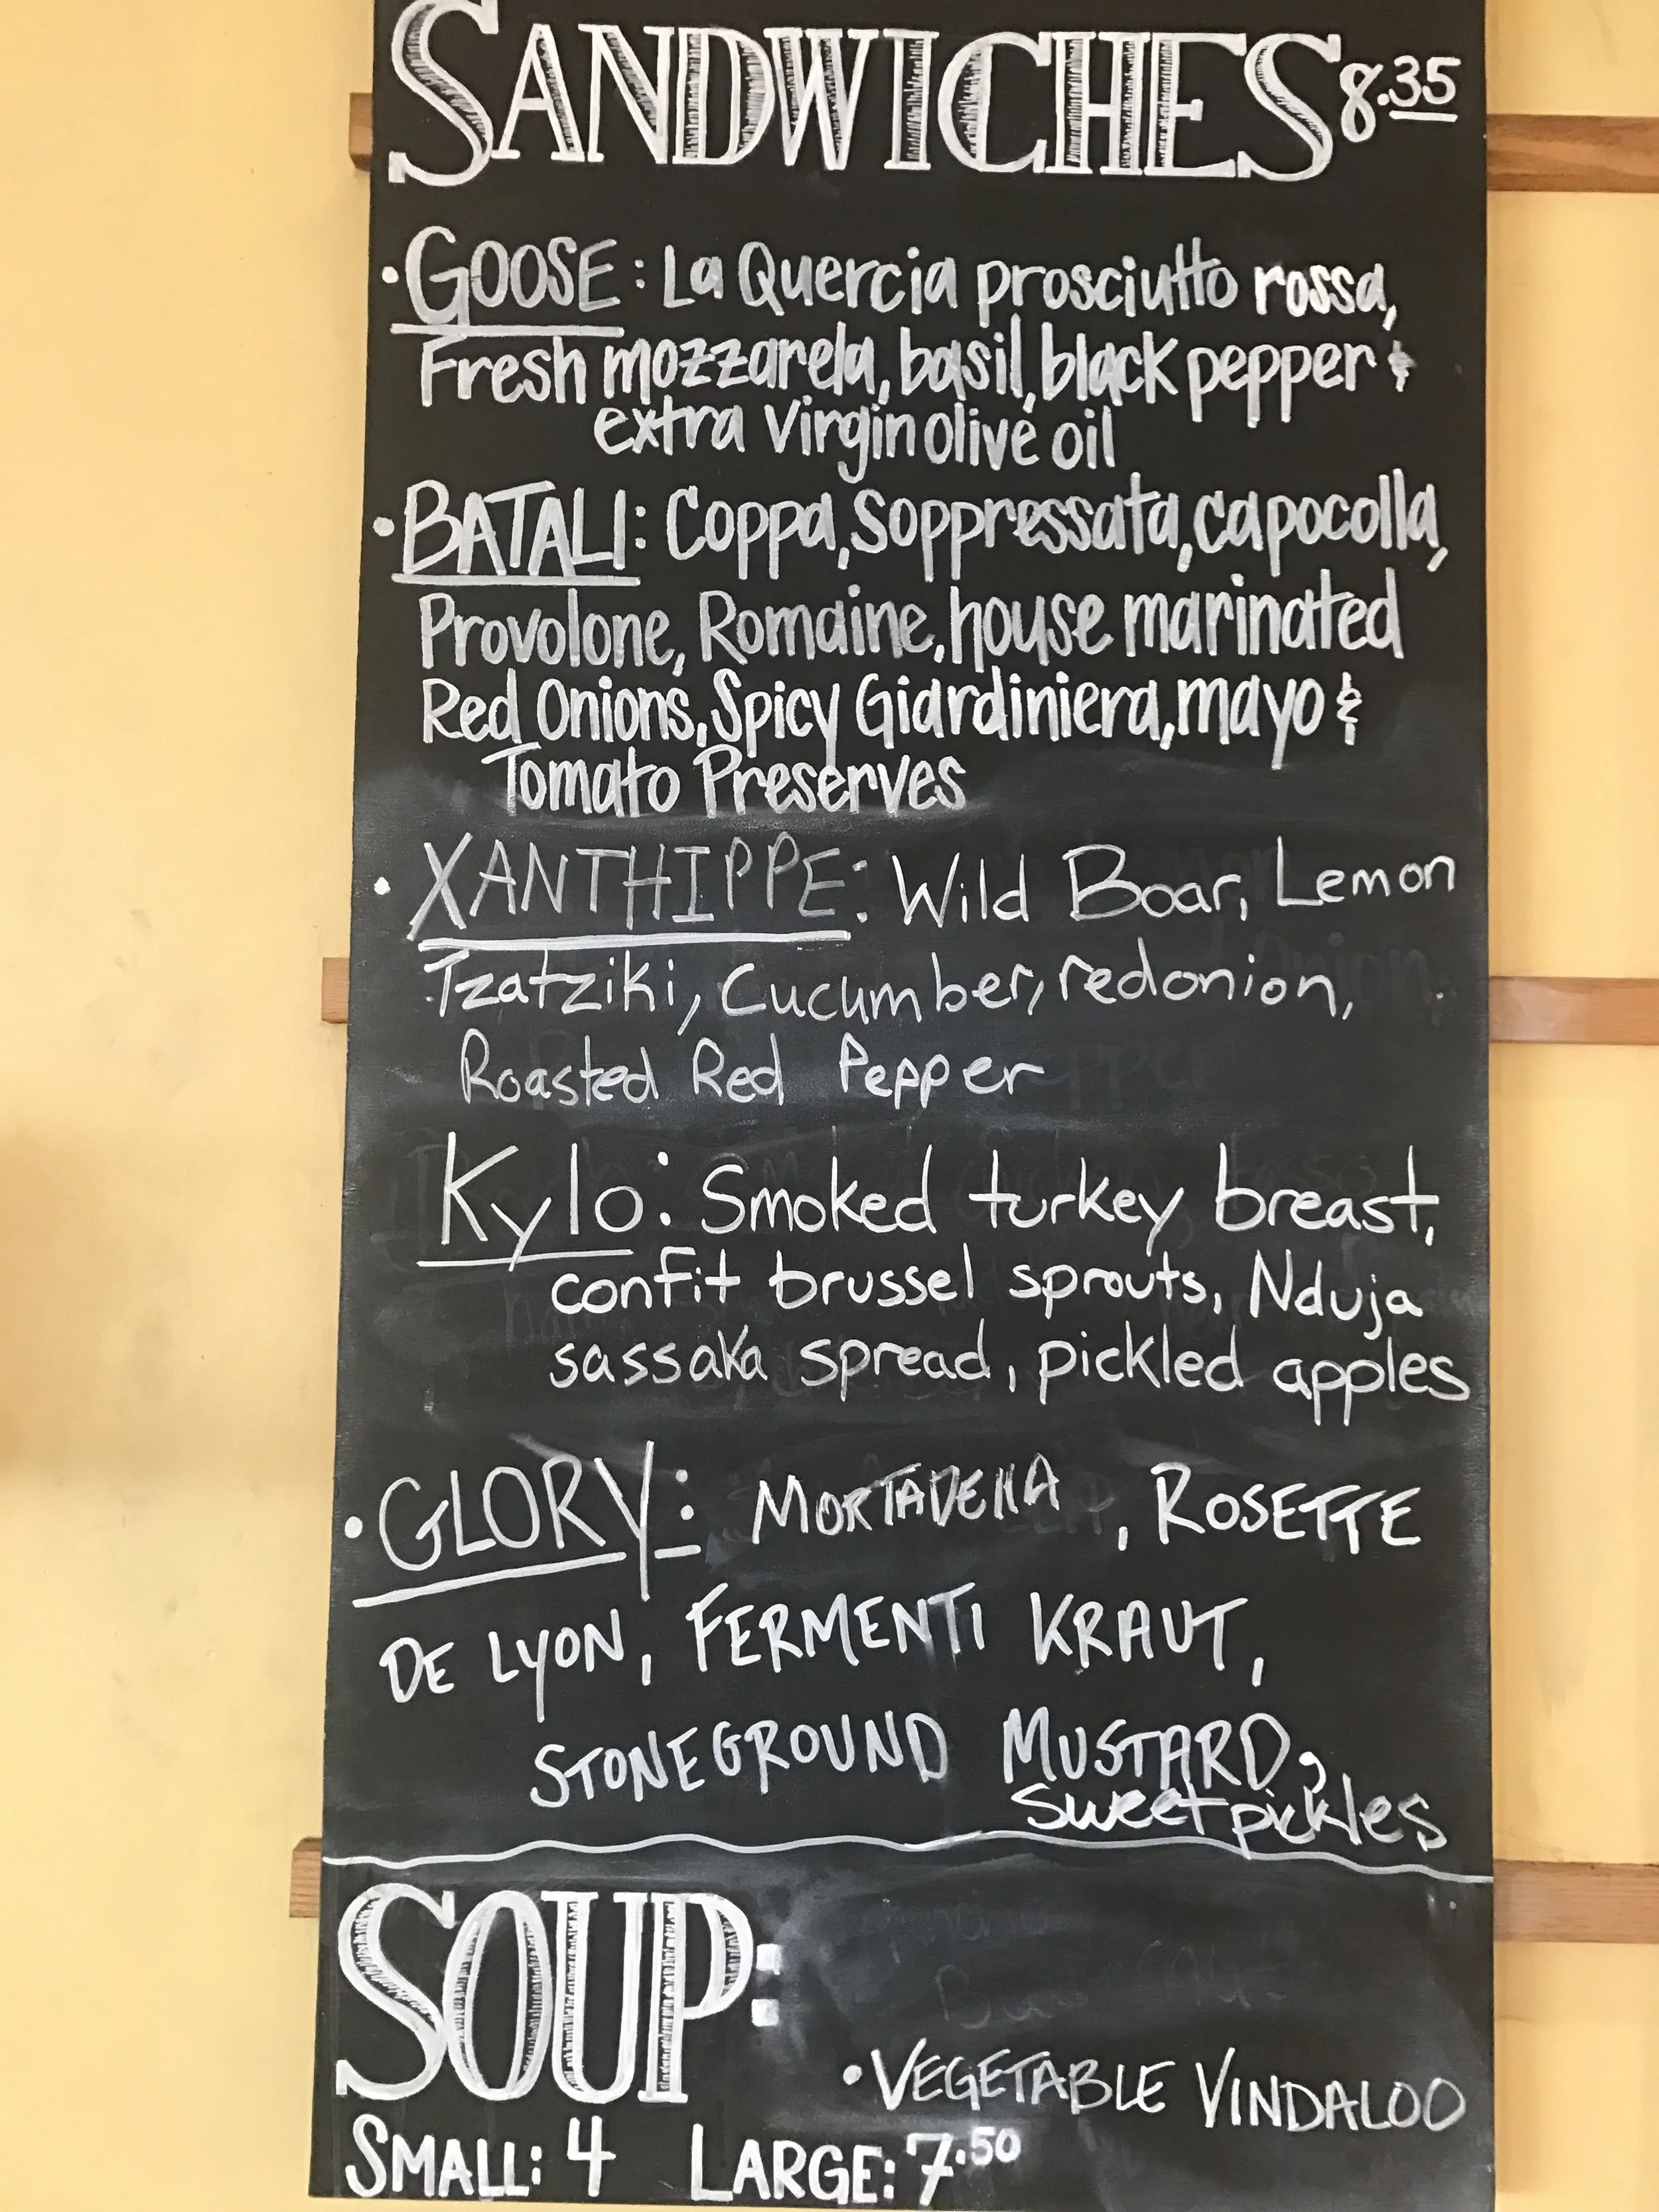 SANDWICHES 8.35
• GOOSE: La Quercia prosciutto rossa,
Fresh mozzarela, basil, black pepper &
extra virgin olive oil
• BATALI: Coppa, Soppressata, capocolla,
Provolone, Romaine, house marinated
Red Onions, Spicy Giardiniera, mayo &
Tomato Preserves
• XANTHIPPE: Wild Boar, Lemon
Tzatziki, Cucumber, red onion,
Roasted Red Pepper
Kylo: Smoked turkey breast,
confit brussel sprouts, Nduja
sassaka spread, pickled apples
• GLORY: MORTADELLA, ROSETTE
DE LYON, FERMENTI KRAUT,
STONEGROUND MUSTARD,
Sweet pickles
SOUP:
• VEGETABLE VINDALOO
SMALL: 4 LARGE: 7.50